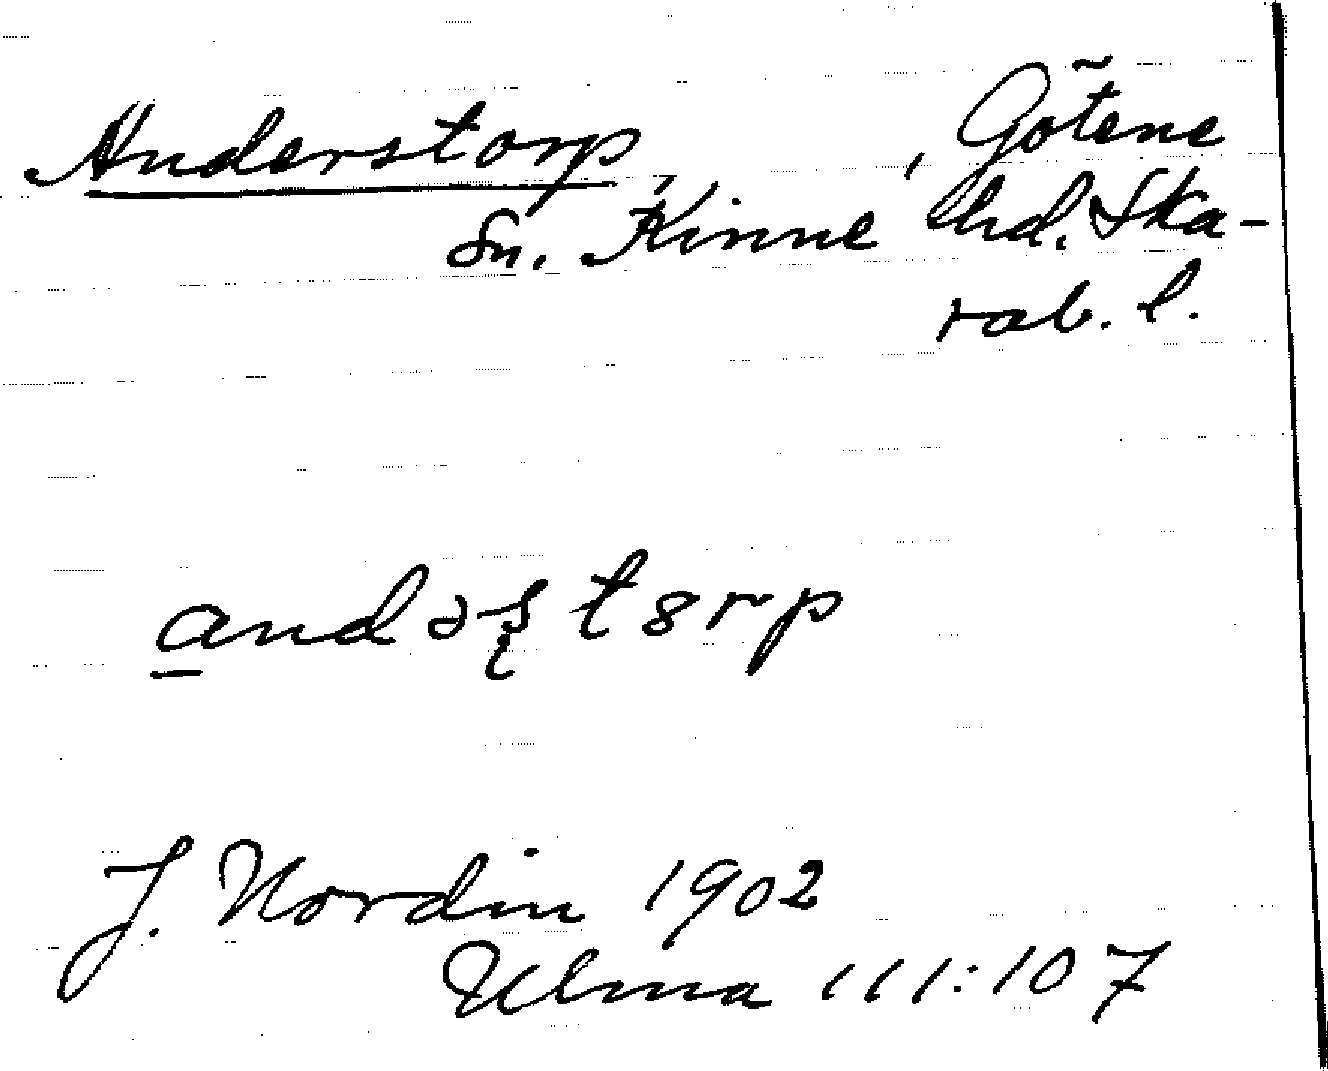 Anderstorp, , Götene
Sn. Kinne hd. Ska-
rab. l.
andəʂtɞrp
J. Nordin 1902
Ulma 111:107